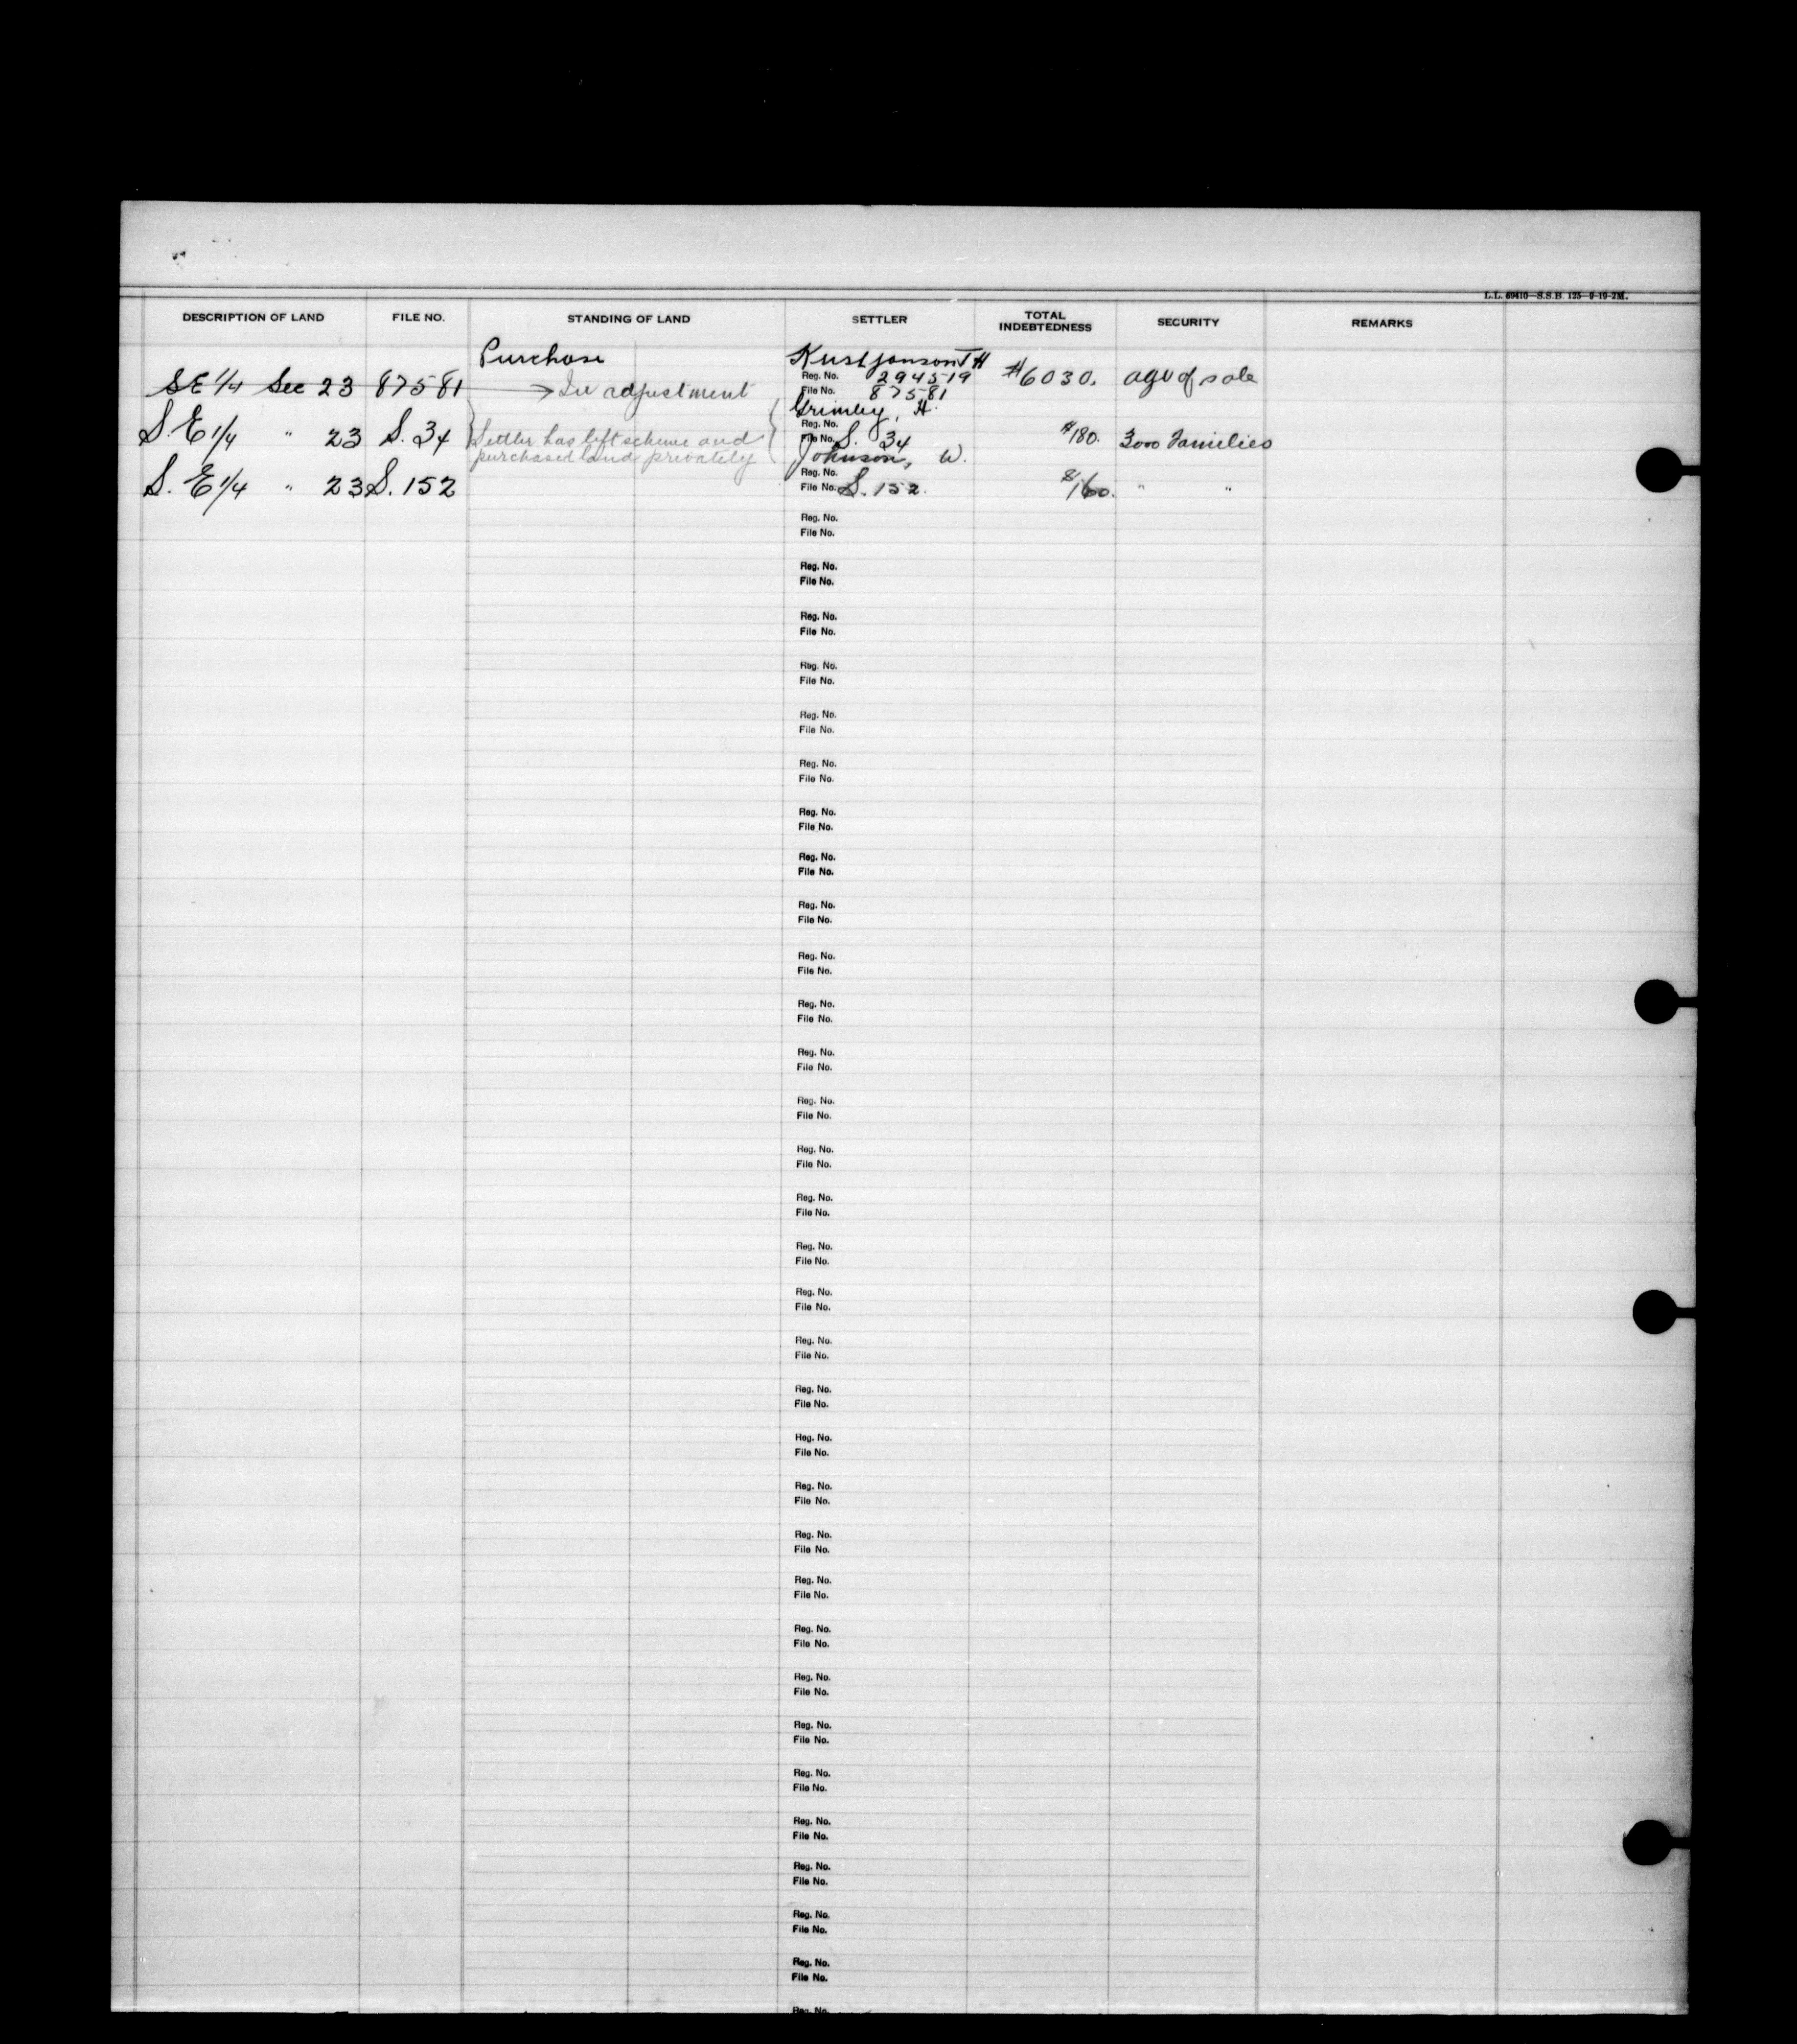 L.L. 69410—S.S.B. 125—9-19-2M.
DESCRIPTION OF LAND FILE NO. STANDING OF LAND SETTLER TOTAL INDEBTEDNESS SECURITY REMARKS
Purchase
SE 1/4 Sec 23 87581 → In adjustment T H Reg. No. 294519 File No. 87581 $6030. agt of sale
S. E 1/4 " 23 S. 34 Settler has left scheme and purchased land privately Grimley, H. Reg. No. File No. S. 34 $180. 3000 Families
S. E 1/4 " 23 S. 152 Johnson, W. Reg. No. File No. S. 152. $160. " "
Reg. No.
File No.
Reg. No.
File No.
Reg. No.
File No.
Reg. No.
File No.
Reg. No.
File No.
Reg. No.
File No.
Reg. No.
File No.
Reg. No.
File No.
Reg. No.
File No.
Reg. No.
File No.
Reg. No.
File No.
Reg. No.
File No.
Reg. No.
File No.
Reg. No.
File No.
Reg. No.
File No.
Reg. No.
File No.
Reg. No.
File No.
Reg. No.
File No.
Reg. No.
File No.
Reg. No.
File No.
Reg. No.
File No.
Reg. No.
File No.
Reg. No.
File No.
Reg. No.
File No.
Reg. No.
File No.
Reg. No.
File No.
Reg. No.
File No.
Reg. No.
File No.
Reg. No.
File No.
Reg. No.
File No.
Reg. No.
File No.
Reg. No.